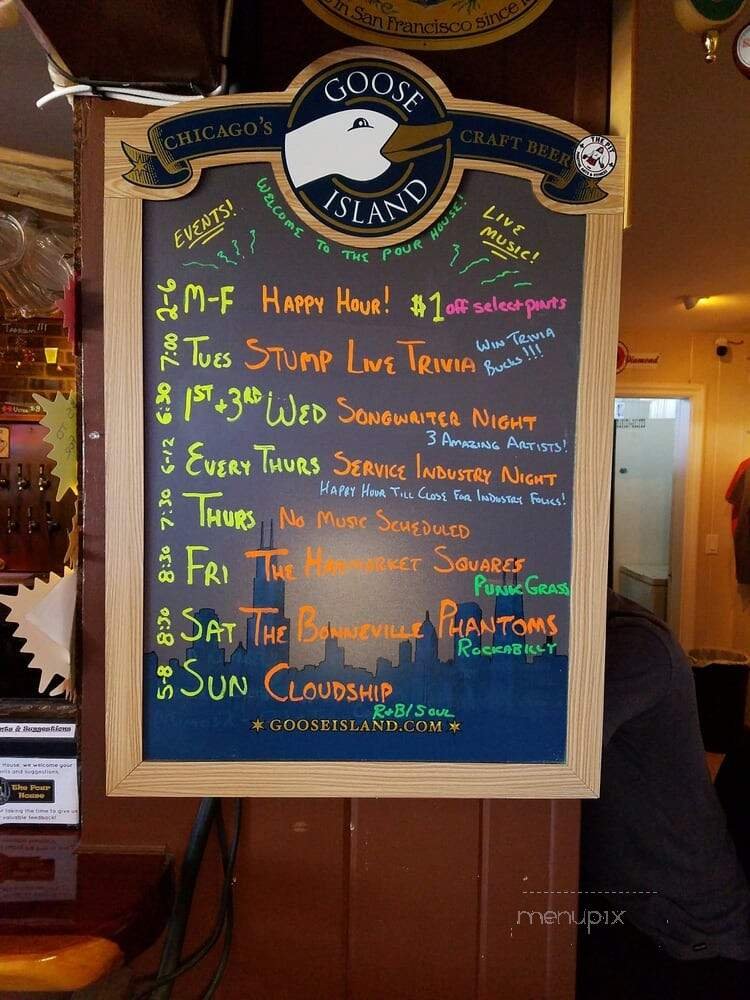 in San Francisco since 18
GOOSE
ISLAND
CHICAGO'S
CRAFT BEER
THE PIT
EVENTS!
WELCOME TO THE POUR HOUSE!
LIVE
MUSIC!
2-6 M-F HAPPY HOUR! $1 off select pints
7:00 TUES STUMP LIVE TRIVIA WIN TRIVIA
BUCKS!!!
6:30 1ST + 3RD WED SONGWRITER NIGHT
3 AMAZING ARTISTS!
6-12 EVERY THURS SERVICE INDUSTRY NIGHT
HAPPY HOUR TILL CLOSE FOR INDUSTRY FOLKS!
7:30 THURS NO MUSIC SCHEDULED
8:30 FRI THE HAYMARKET SQUARES
PUNK GRASS
8:30 SAT THE BONNEVILLE PHANTOMS
ROCKABILLY
5-8 SUN CLOUDSHIP
R+B/SOUL
GOOSEISLAND.COM
Diamond
nts & Suggestions
House, we welcome your
nts and suggestions.
The Pour
House
r taking the time to give us
valuable feedback!
menupix